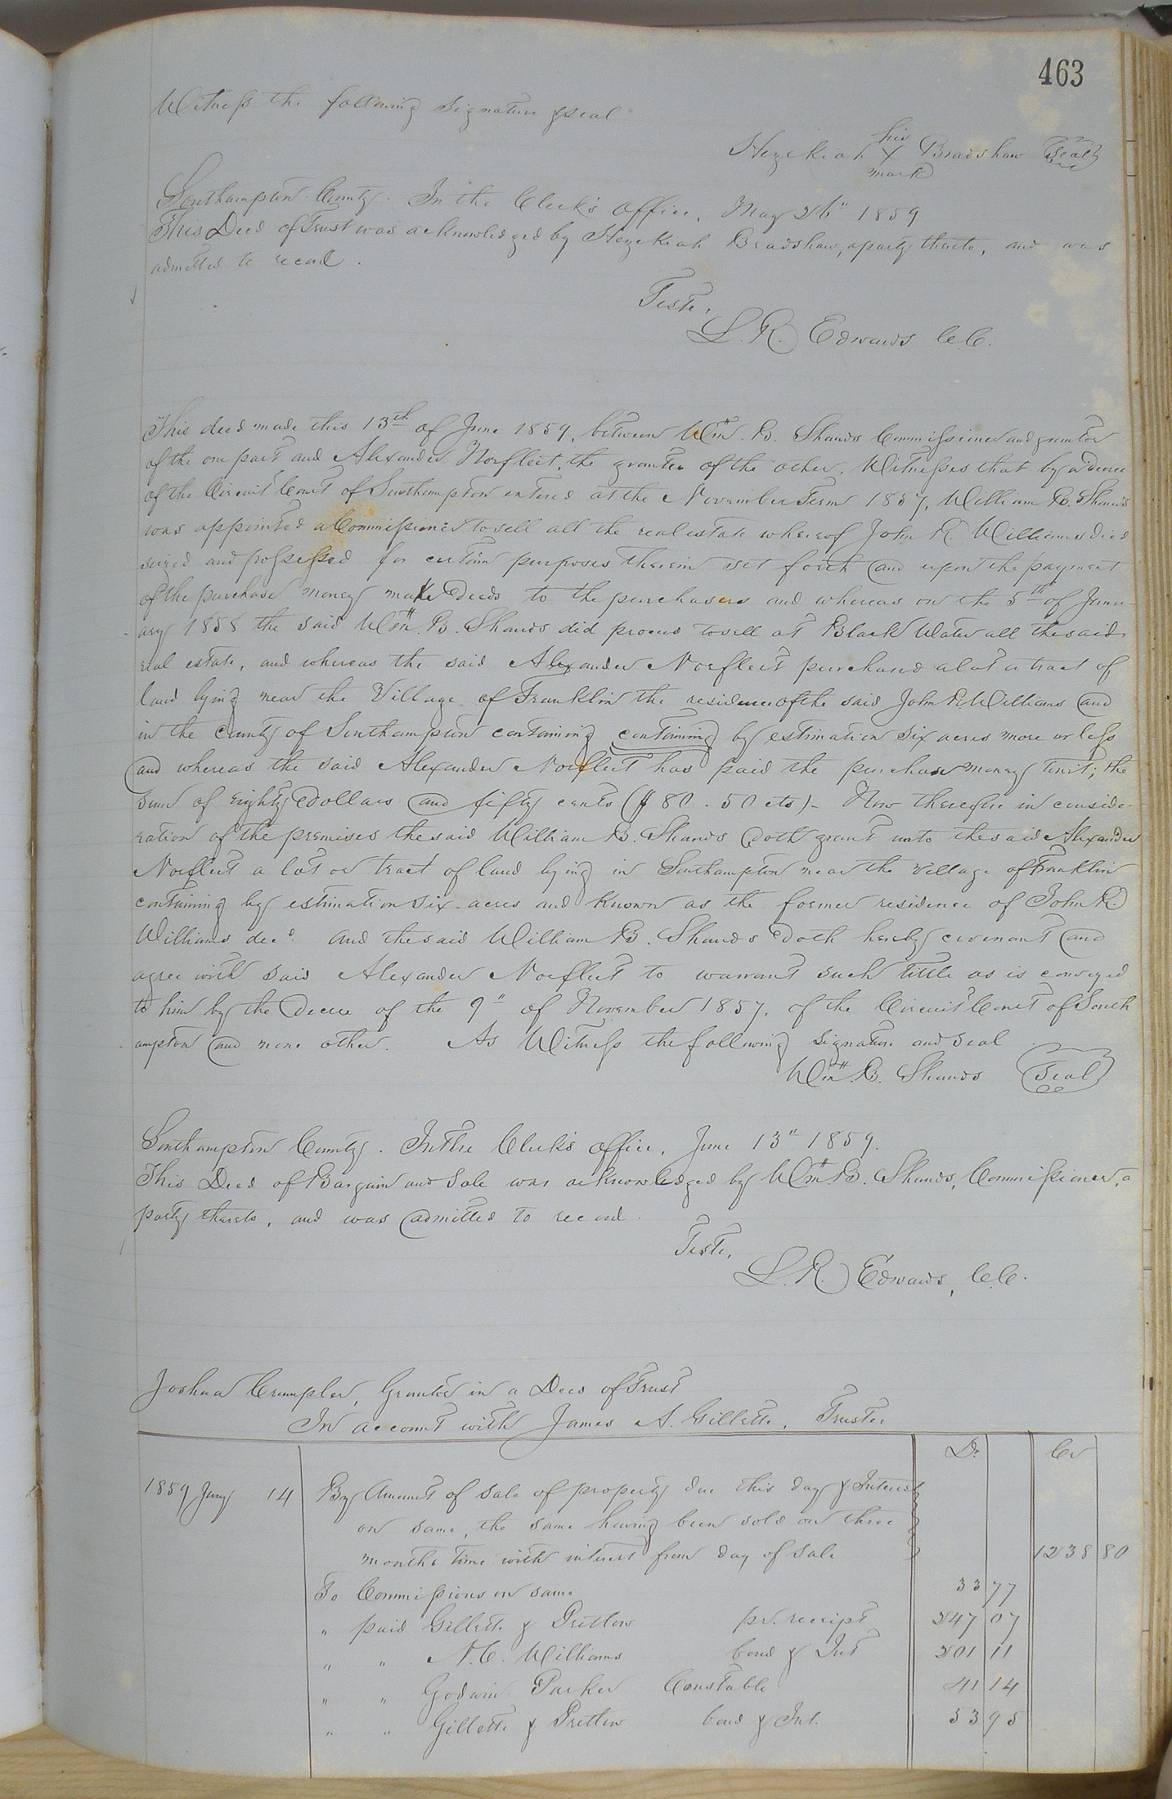 463
Witness the following signature & seal
his
Hezekiah X Bradshaw Seal
mark
Southampton County. In the Clerk's office, May 26" 1859
This Deed of Trust was acknowledged by Hezekiah Bradshaw, a party thereto, and was
admitted to record.
Teste,
L. R. Edwards C.C.
This deed made this 13th of June 1859, between Wm. B. Shands Commissioner and grantor
of the one part and Alexander Norfleet, the grantee of the other, Witnesses that by a decree
of the Circuit Court of Southampton entered at the November Term 1857, William B. Shands
was appointed a Commissioner to sell all the real estate whereof John R. Williams died
seized and possessed for certain purposes therein set forth and upon the payment
of the purchase money make Deeds to the purchasers and whereas on the 5th of Janu-
ary 1858 the said Wm. B. Shands did proceed to sell at Black Water all the said
real estate, and whereas the said Alexander Norfleet purchased a lot or tract of
land lying near the Village of Franklin the residence of the said John R. Williams and
in the county of Southampton containing containing by estimation six acres more or less
and whereas the said Alexander Norfleet has paid the purchase money towit; the
sum of eighty Dollars and fifty cents ($80.50 cts)- Now therefore in conside-
ration of the premises the said William B. Shands doth grant unto the said Alexander
Norfleet a lot or tract of land lying in Southampton near the village of Franklin
containing by estimation six acres and known as the former residence of John R.
Williams decd. And the said William B. Shands Doth hereby covenant and
agree with said Alexander Norfleet to warrant such tittle as is conveyed
to him by the Decree of the 9" of November 1857, of the Circuit Court of South
ampton and none other. As Witness the following signature and seal
Wm. B. Shands Seal
Southampton County. In the Clerk's office, June 13" 1859.
This Deed of Bargain and Sale was acknowledged by Wm. B. Shands, Commissioner, a
party thereto, and was admitted to record.
Teste,
L. R. Edwards, C.C.
Joshua Crumpler, Grantor in a Deed of Trust
In account with James A. Gillette, Trustee
Dr Cr
1859 Jany 14 By Amount of sale of property due this day & Interest
on same, the same having been sold on three
months time with interest from day of sale 1238 80
To Commissions on same 33 77
" paid Gillette & Pretlow pr. receipt 247 07
" " N. C. Williams bond & Int 201 11
" " Godwin Parker Constable 41 14
" " Gillette & Pretlow bond & Int. 53 95